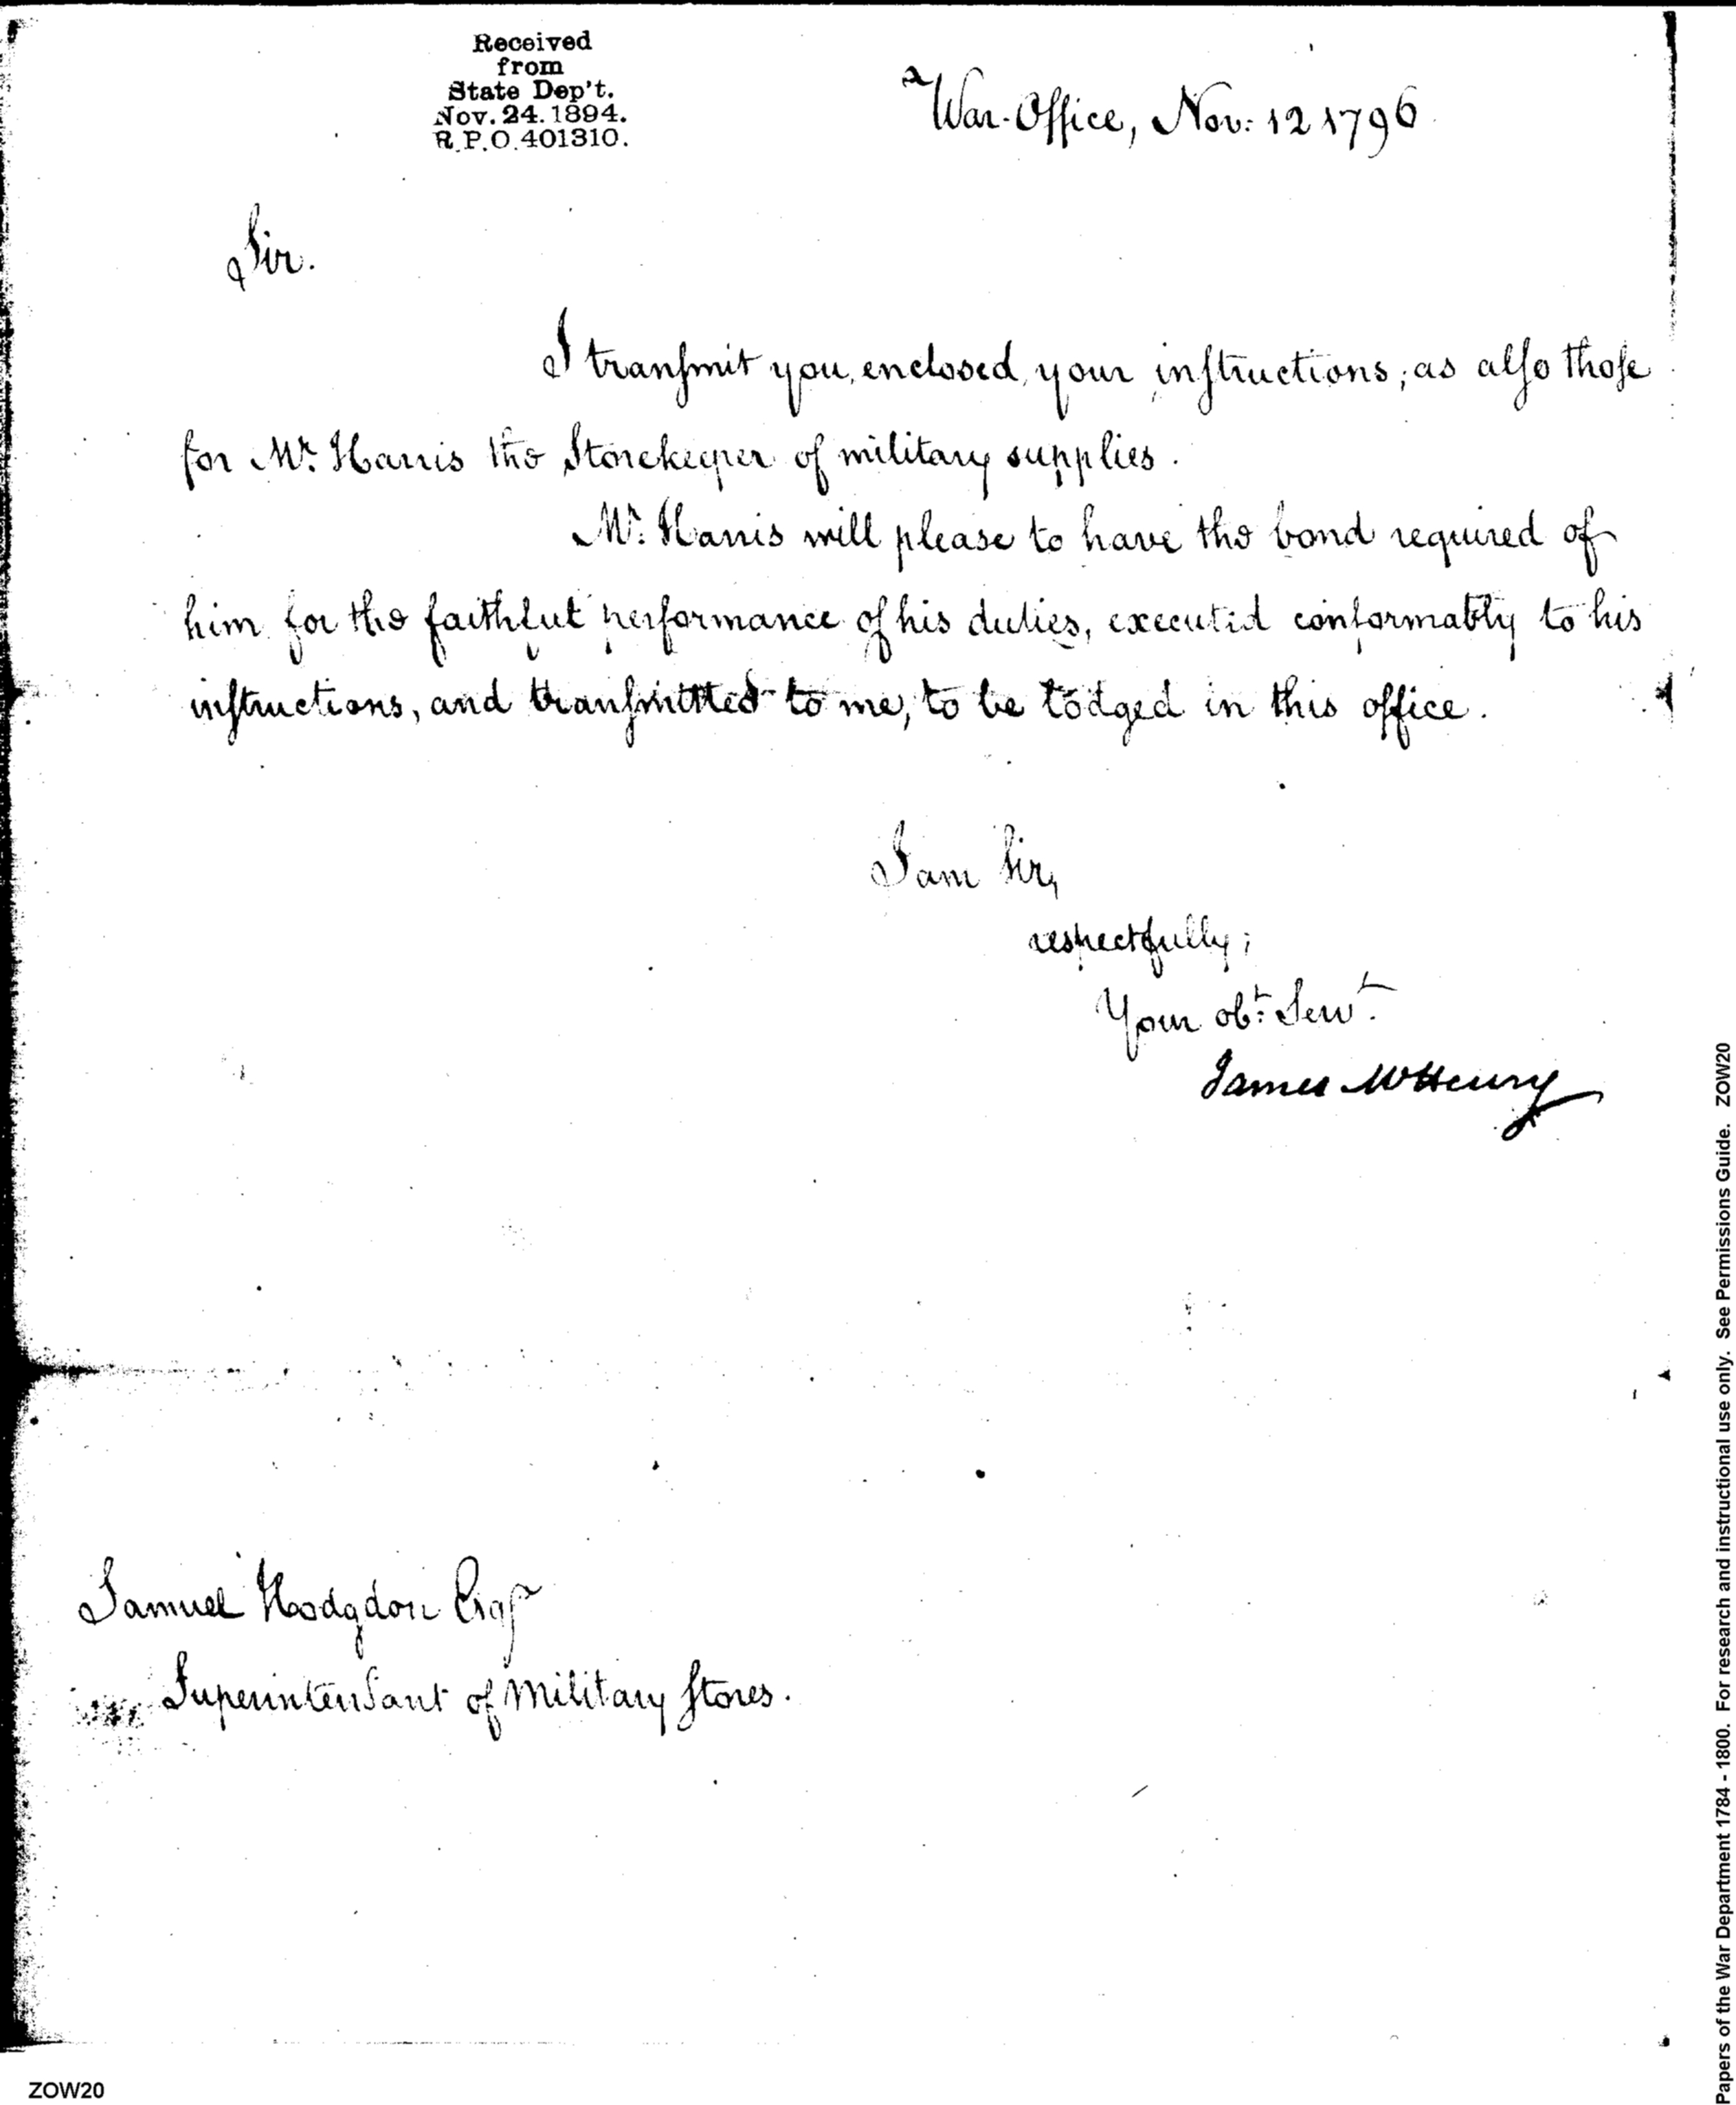 Received
from
State Dep't.
Nov. 24. 1894.
R.P.O. 401310.
War-Office, Nov: 12 1796
Sir.
I tranſmit you, enclosed, your inſtructions; as alſo thoſe
for Mr. Harris the Storekeeper of military supplies.
Mr. Harris will please to have the bond required of
him for the faithful performance of his duties, executed conformably to his
inſtructions, and tranſmitted to me, to be lodged in this office.
I am Sir,
respectfully;
Your obt. Servt.
James McHenry
Samuel Hodgdon Esqr
Superintendant of Military Stores.
ZOW20
Papers of the War Department 1784 - 1800. For research and instructional use only. See Permissions Guide. ZOW20